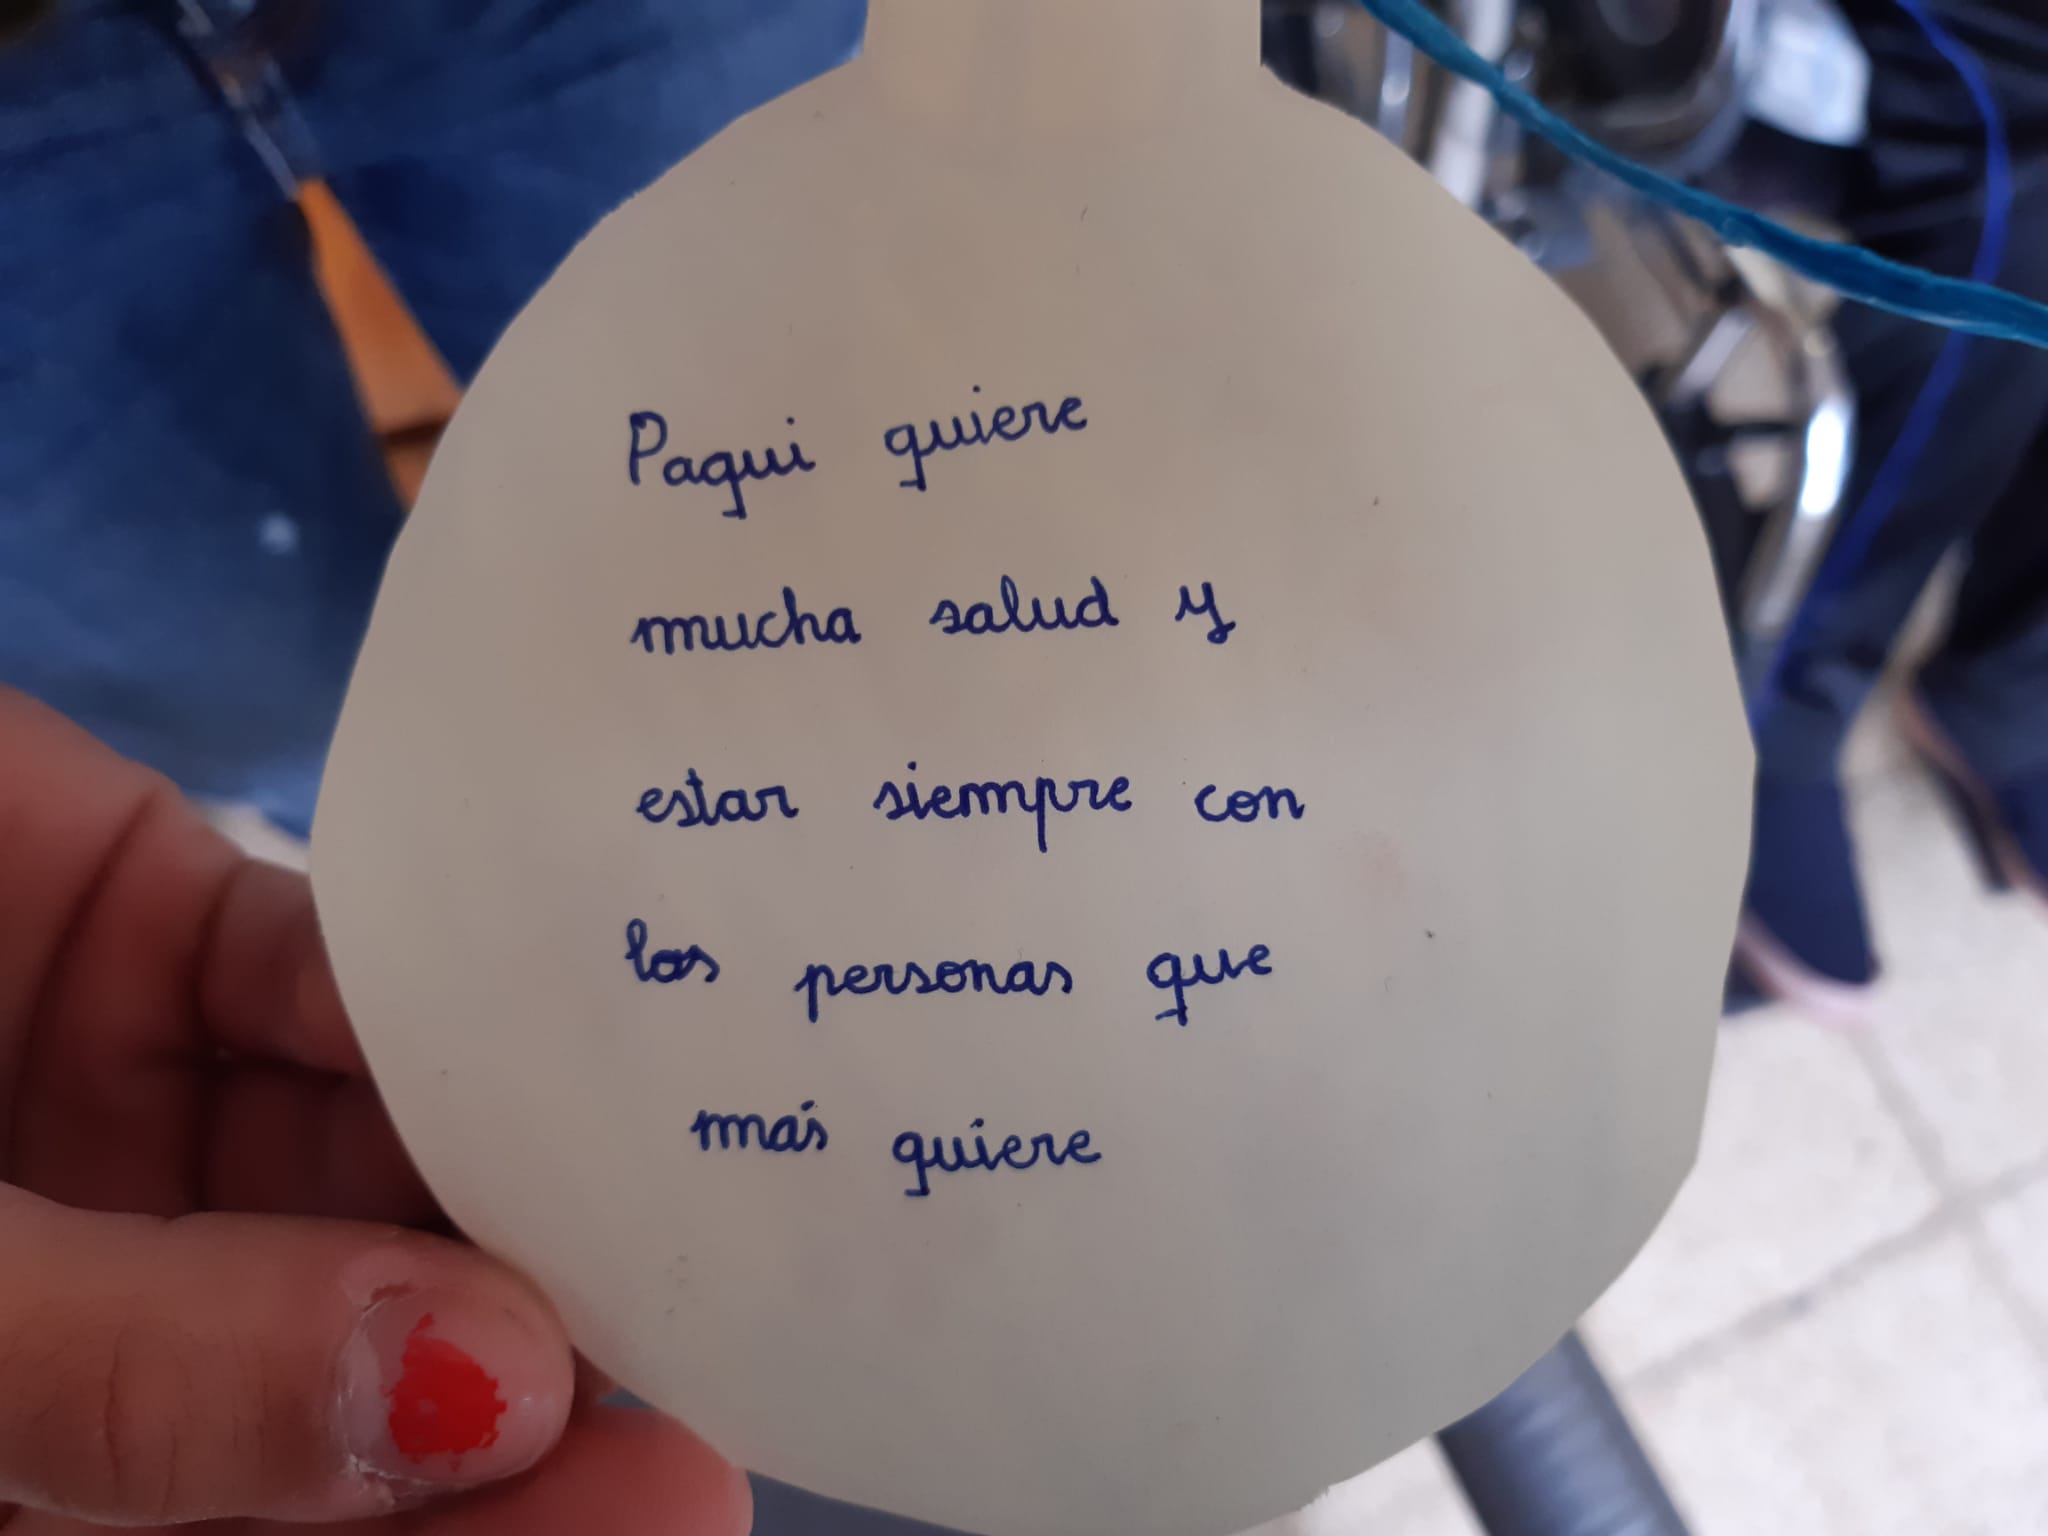 Paqui quiere
mucha salud y
estar siempre con
las personas que
más quiere